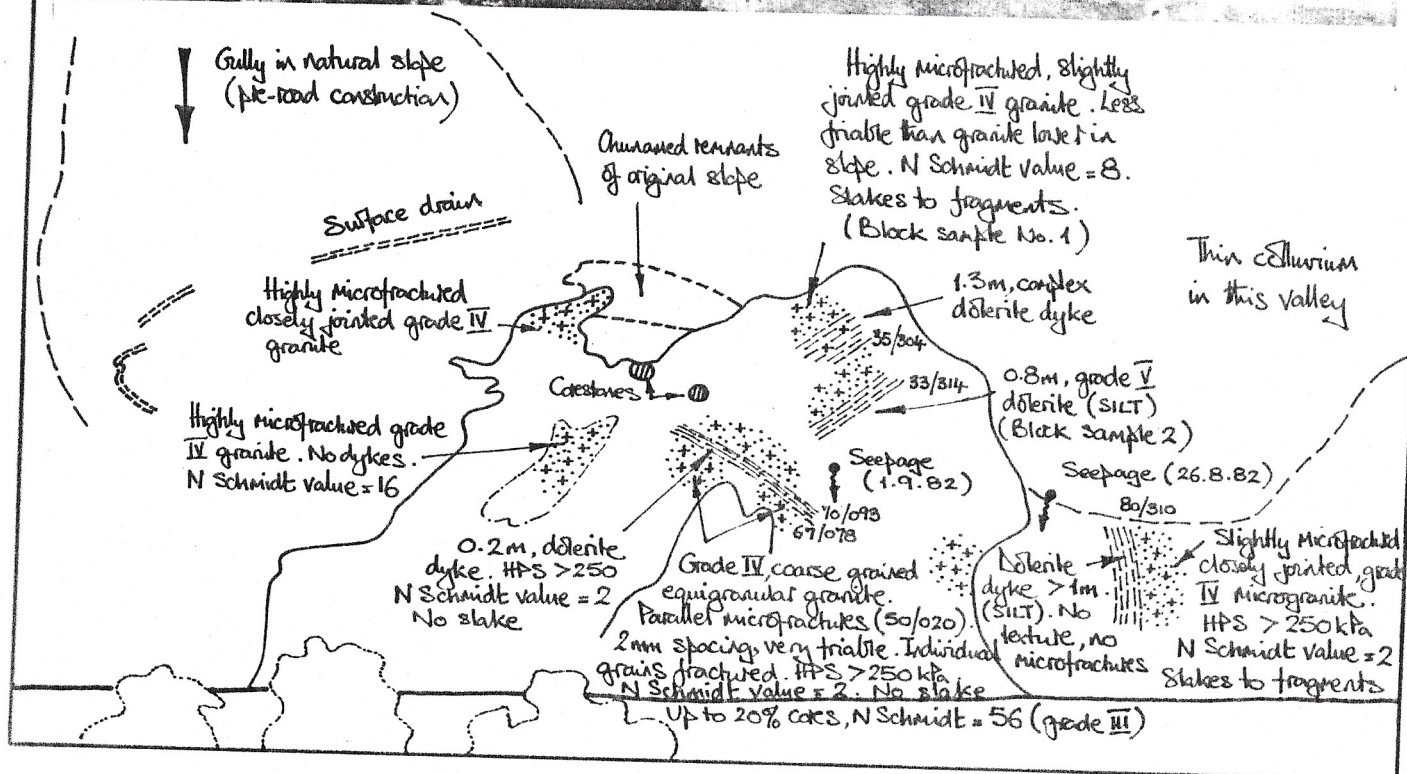 Gully in natural slope
(pre-road construction)
Surface drain
Chunamed remnants
of original slope
Highly microfractured, slightly
jointed grade IV granite. Less
friable than granite lower in
slope. N Schmidt value = 8.
Slakes to fragments.
(Block sample No. 1)
Thin colluvium
in this valley
Highly microfractured
closely jointed grade IV
granite
1.3m, complex
dolerite dyke
35/304
33/314
Corestones
0.8m, grade V
dolerite (SILT)
(Block sample 2)
Highly microfractured grade
IV granite. No dykes.
N Schmidt value = 16
Seepage
(1.9.82)
Seepage (26.8.82)
80/310
70/093
67/078
0.2m, dolerite
dyke. HPS >250
N Schmidt value = 2
No slake
Grade IV, coarse grained
equigranular granite.
Parallel microfractures (50/020).
2mm spacing, very friable. Individual
grains fractured. HPS >250 kPa
N Schmidt value = 2. No slake
Up to 20% cores, N Schmidt = 56 (grade III)
Dolerite
dyke >1m.
(SILT). No
texture, no
microfractures
Slightly microfractured
closely jointed, grade
IV microgranite.
HPS > 250 kPa
N Schmidt value = 2
Slakes to fragments